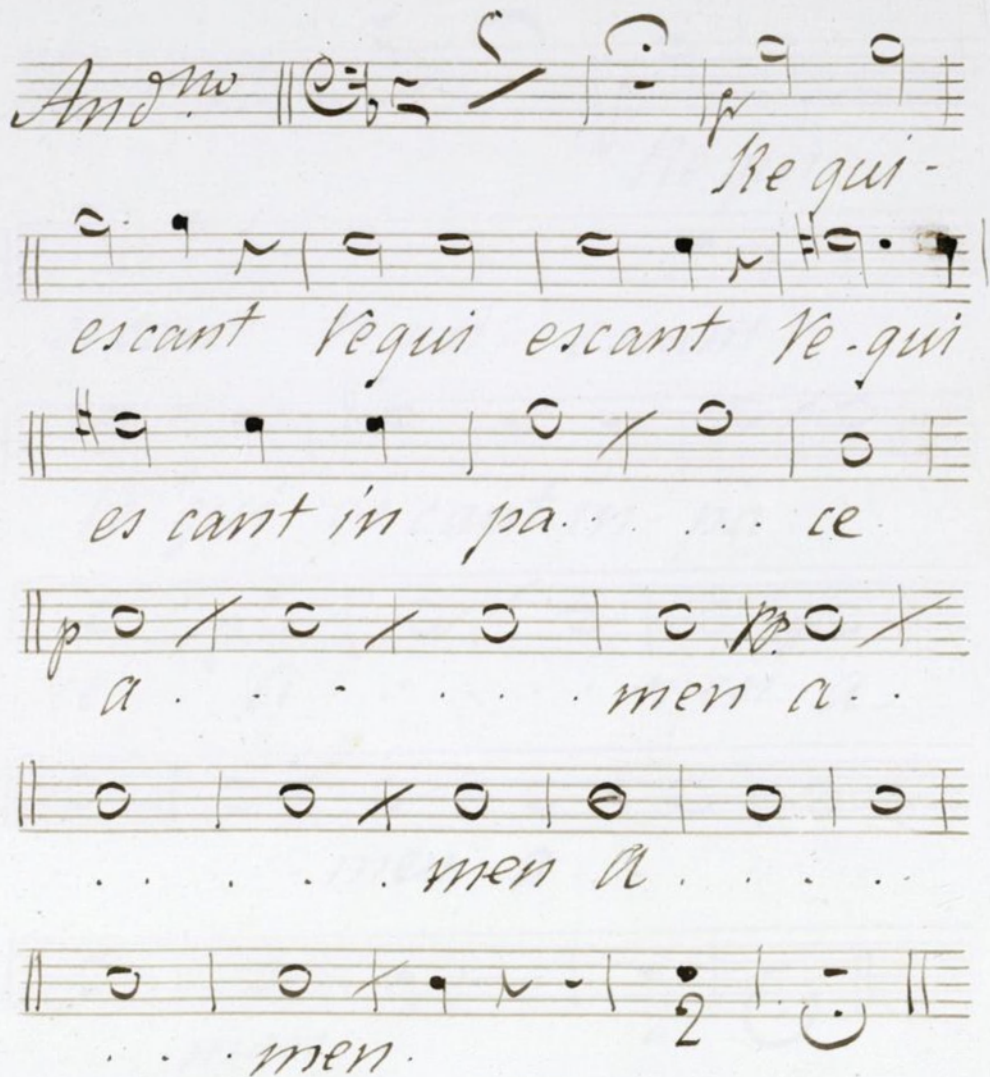 Andno
p
Re qui-
escant Requi escant Re-qui
es cant in pa. . . . ce.
p pp
a . . - . . . men a. .
. . . . . men a . . . .
2
. . . men.